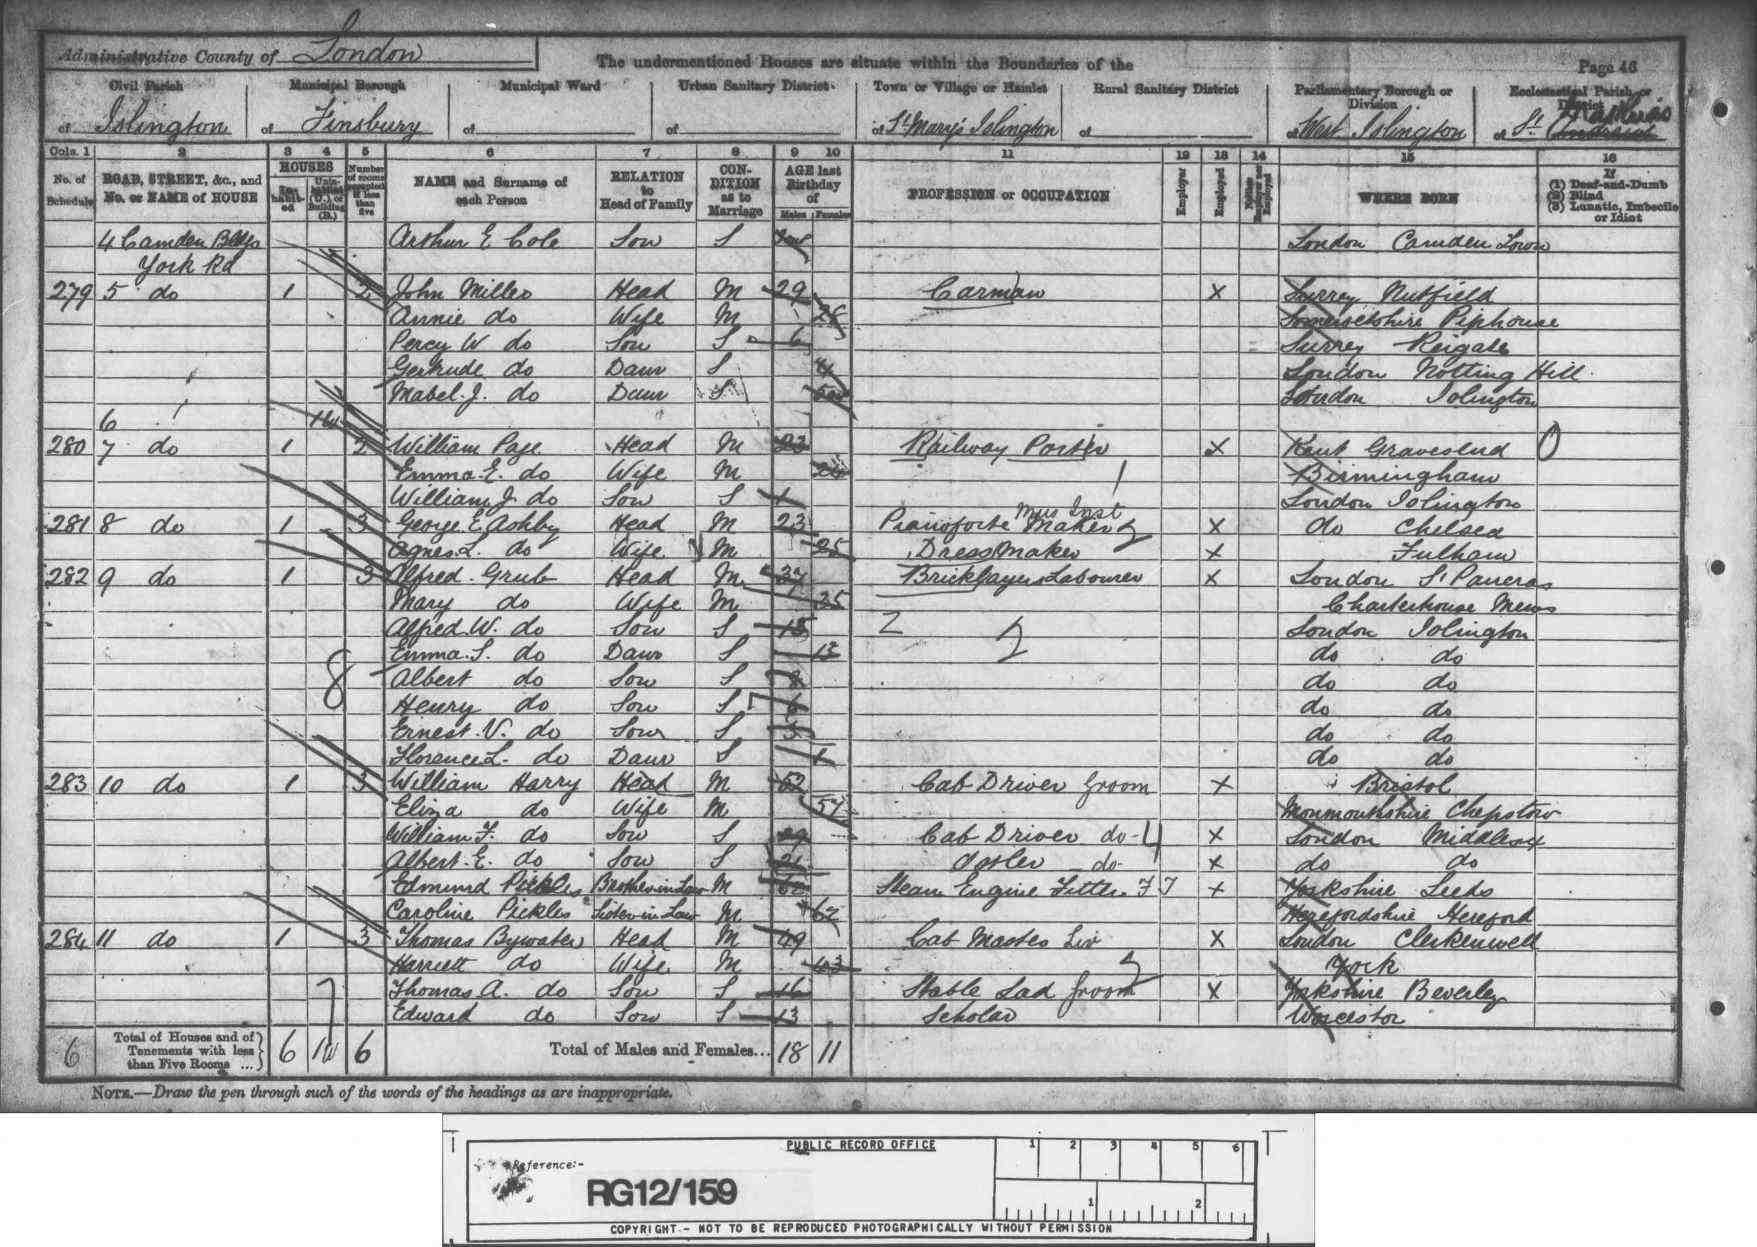 Administrative County of London
The undermentioned Houses are situate within the Boundaries of the
Page 46
Civil Parish of Islington
Municipal Borough of Finsbury
Municipal Ward of
Urban Sanitary District of
Town or Village or Hamlet of St Mary's Islington
Rural Sanitary District of
Parliamentary Borough or Division of West Islington
Ecclesiastical Parish or District of St
Cols. 1 2 3 4 5 6 7 8 9 10 11 12 13 14 15 16
No. of Schedule
ROAD, STREET, &c., and No. or NAME of HOUSE
HOUSES
Inhabited
Uninhabited (U.) or Building (B.)
Number of rooms occupied if less than five
NAME and Surname of each Person
RELATION to Head of Family
CONDITION as to Marriage
AGE last Birthday of
Males Females
PROFESSION or OCCUPATION
Employer
Employed
Neither Employer nor Employed
WHERE BORN
If
(1) Deaf-and-Dumb
(2) Blind
(3) Lunatic, Imbecile or Idiot
4 Camden Bldgs Arthur E Cole Son S London Camden Town
York Rd
279 5 do 1 2 John Miller Head M 29 Carman X Surrey Nutfield
Annie do Wife M 28 Somersetshire
Percy W do Son S 6 Surrey Reigate
Gertrude do Daur S 4 London Notting Hill
Mabel J. do Daur S London Islington
6 1U
280 7 do 1 2 William Page Head M 23 Railway Porter X Kent Gravesend
Emma E. do Wife M 24 Birmingham
William J. do Son S 1 London Islington
281 8 do 1 3 George E Ashby Head M 23 Pianoforte Maker Mus Inst X do Chelsea
Agnes L. do Wife M 25 Dress Maker X Fulham
282 9 do 1 3 Alfred Grub Head M 37 Bricklayers Labourer X London St Pancras
Mary do Wife M 35 Charterhouse Mews
Alfred W. do Son S 15 London Islington
2 2
Emma S. do Daur S 13 do do
Albert do Son S 8 do do
8
Henry do Son S 6 do do
Ernest V. do Son S 3 do do
Florence L. do Daur S 1 do do
283 10 do 1 3 William Harry Head M 52 Cab Driver Groom X Bristol
Eliza do Wife M 54 Monmouthshire Chepstow
William F. do Son S 29 Cab Driver do 4 X London Middlesex
Albert E. do Son S 21 Ostler do X do do
Edmund Pickles Brother in Law M Steam Engine Fitter F J X Yorkshire Leeds
Caroline Pickles Sister in Law M 62 Herefordshire Hereford
284 11 do 1 3 Thomas Bywater Head M 49 Cab Master Liv X London Clerkenwell
Harriett do Wife M 43 York
Thomas A. do Son S 16 Stable Lad Groom X Yorkshire Beverley
7
Edward do Son S 13 Scholar Worcester
6 Total of Houses and of Tenements with less than Five Rooms ... 6 1U 6 Total of Males and Females... 18 11
NOTE.—Draw the pen through such of the words of the headings as are inappropriate.
PUBLIC RECORD OFFICE
1 2 3 4 5 6
Reference:-
RG12/159
1 2
COPYRIGHT - NOT TO BE REPRODUCED PHOTOGRAPHICALLY WITHOUT PERMISSION